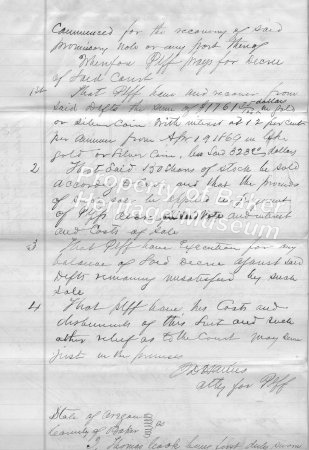 Commenced for the recovery of said
promissory note or any part thereof
Wherefore Plff prays for Decree
of said Court
1st That Plff have and recover from
said Defts the sum of $1761 dollars
in gold
or silver Coin with interest at 12 per cent
per annum from Apr 19 1869 in like
gold or silver Coin, less said 323 dollars
2 That said 130 Shares of stock be sold
according to law and that the proceeds
of said sale be applied in payment
of Plffs and interest
and Costs of Sale
3 That Plff have Execution for any
balance of said Decree against said
Defts remaining unsatisfied by such
sale
4 That Plff have his Costs and
disbursements of this suit and such
other relief as to the Court may seem
just in the premises
atty for Plff
State of Oregon
County of Baker ss
I Thomas Cook being first duly sworn
Property of Baker
Heritage Museum